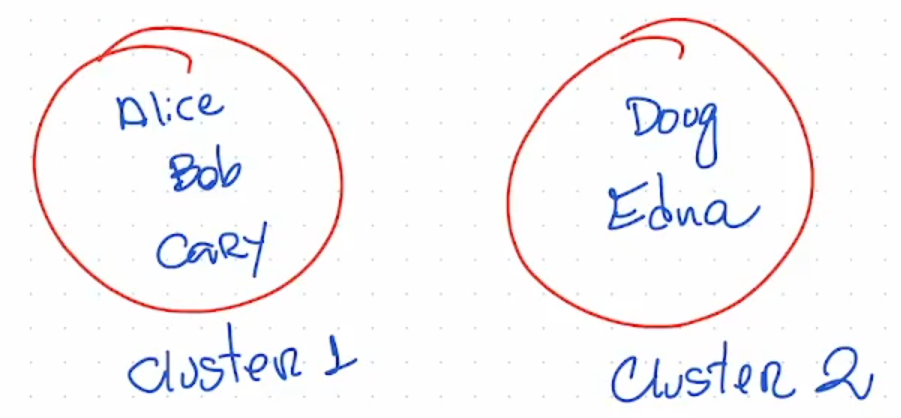 Alice
Bob
Cary
Cluster 1
Doug
Edna
Cluster 2